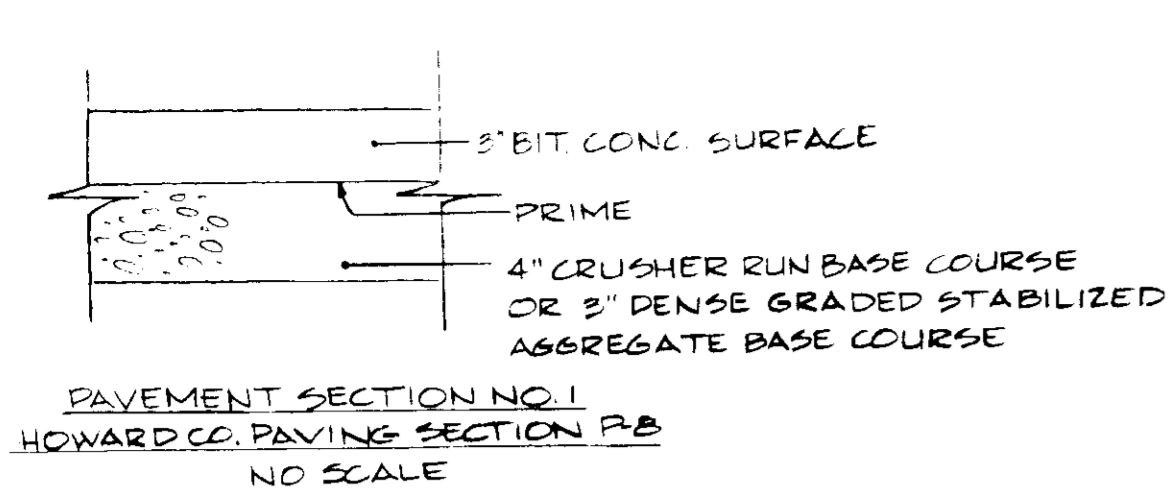 3" BIT. CONC. SURFACE
PRIME
4" CRUSHER RUN BASE COURSE
OR 3" DENSE GRADED STABILIZED
AGGREGATE BASE COURSE
PAVEMENT SECTION NO. 1
HOWARD CO. PAVING SECTION P-8
NO SCALE